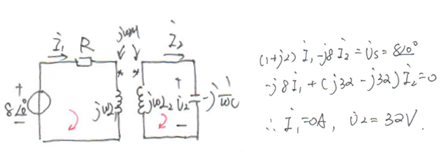 İ₁ R jωM İ₂
+ 8∠0° − jωL₁ jωL₂ + U̇₂ − -j 1/ωC
(1+j2) İ₁ -j8 İ₂ = U̇s = 8∠0°
-j8 İ₁ + (j32 - j32) İ₂ = 0
∴ İ₁ = 0A, U̇₂ = 32V.